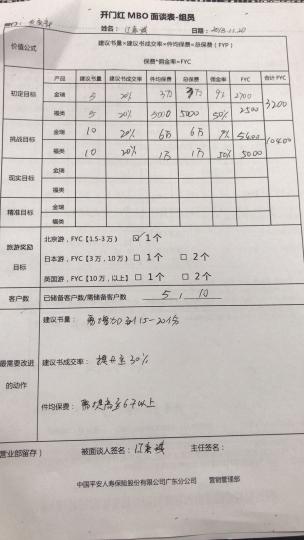 开门红 MBO 面谈表-组员
姓名: 日期: 2018.11.20
价值公式 建议书量×建议书成交率×件均保费=总保费(FYP)
保费*佣金率=FYC
产品 建议书量 建议书成交率 件均保费 总保费 佣金率 FYC 合计 FYC
初定目标 金瑞 5 20% 3万 3万 9% 2700 5200
福类 5 20% 5000 5000 50% 2500
挑战目标 金瑞 10 20% 6万 6万 9% 5400 10400
福类 10 20% 1万 1万 50% 5000
现实目标 金瑞
福类
精准目标 金瑞
福类
旅游奖励目标 北京游,FYC【1.5-3万】 ☑ 1个
日本游,FYC【3万,10万】 □ 1个 □ 2个
英国游,FYC【10万,以上】 □ 1个 □ 2个
客户数 已储备客户数/需储备客户数 5 , 10
最需要改进的动作 建议书量: 需增加至15-20份
建议书成交率: 提升至30%
件均保费: 需提高至6千以上
营业部留存) 被面谈人签名: 主任签名:
中国平安人寿保险股份有限公司广东分公司 营销管理部